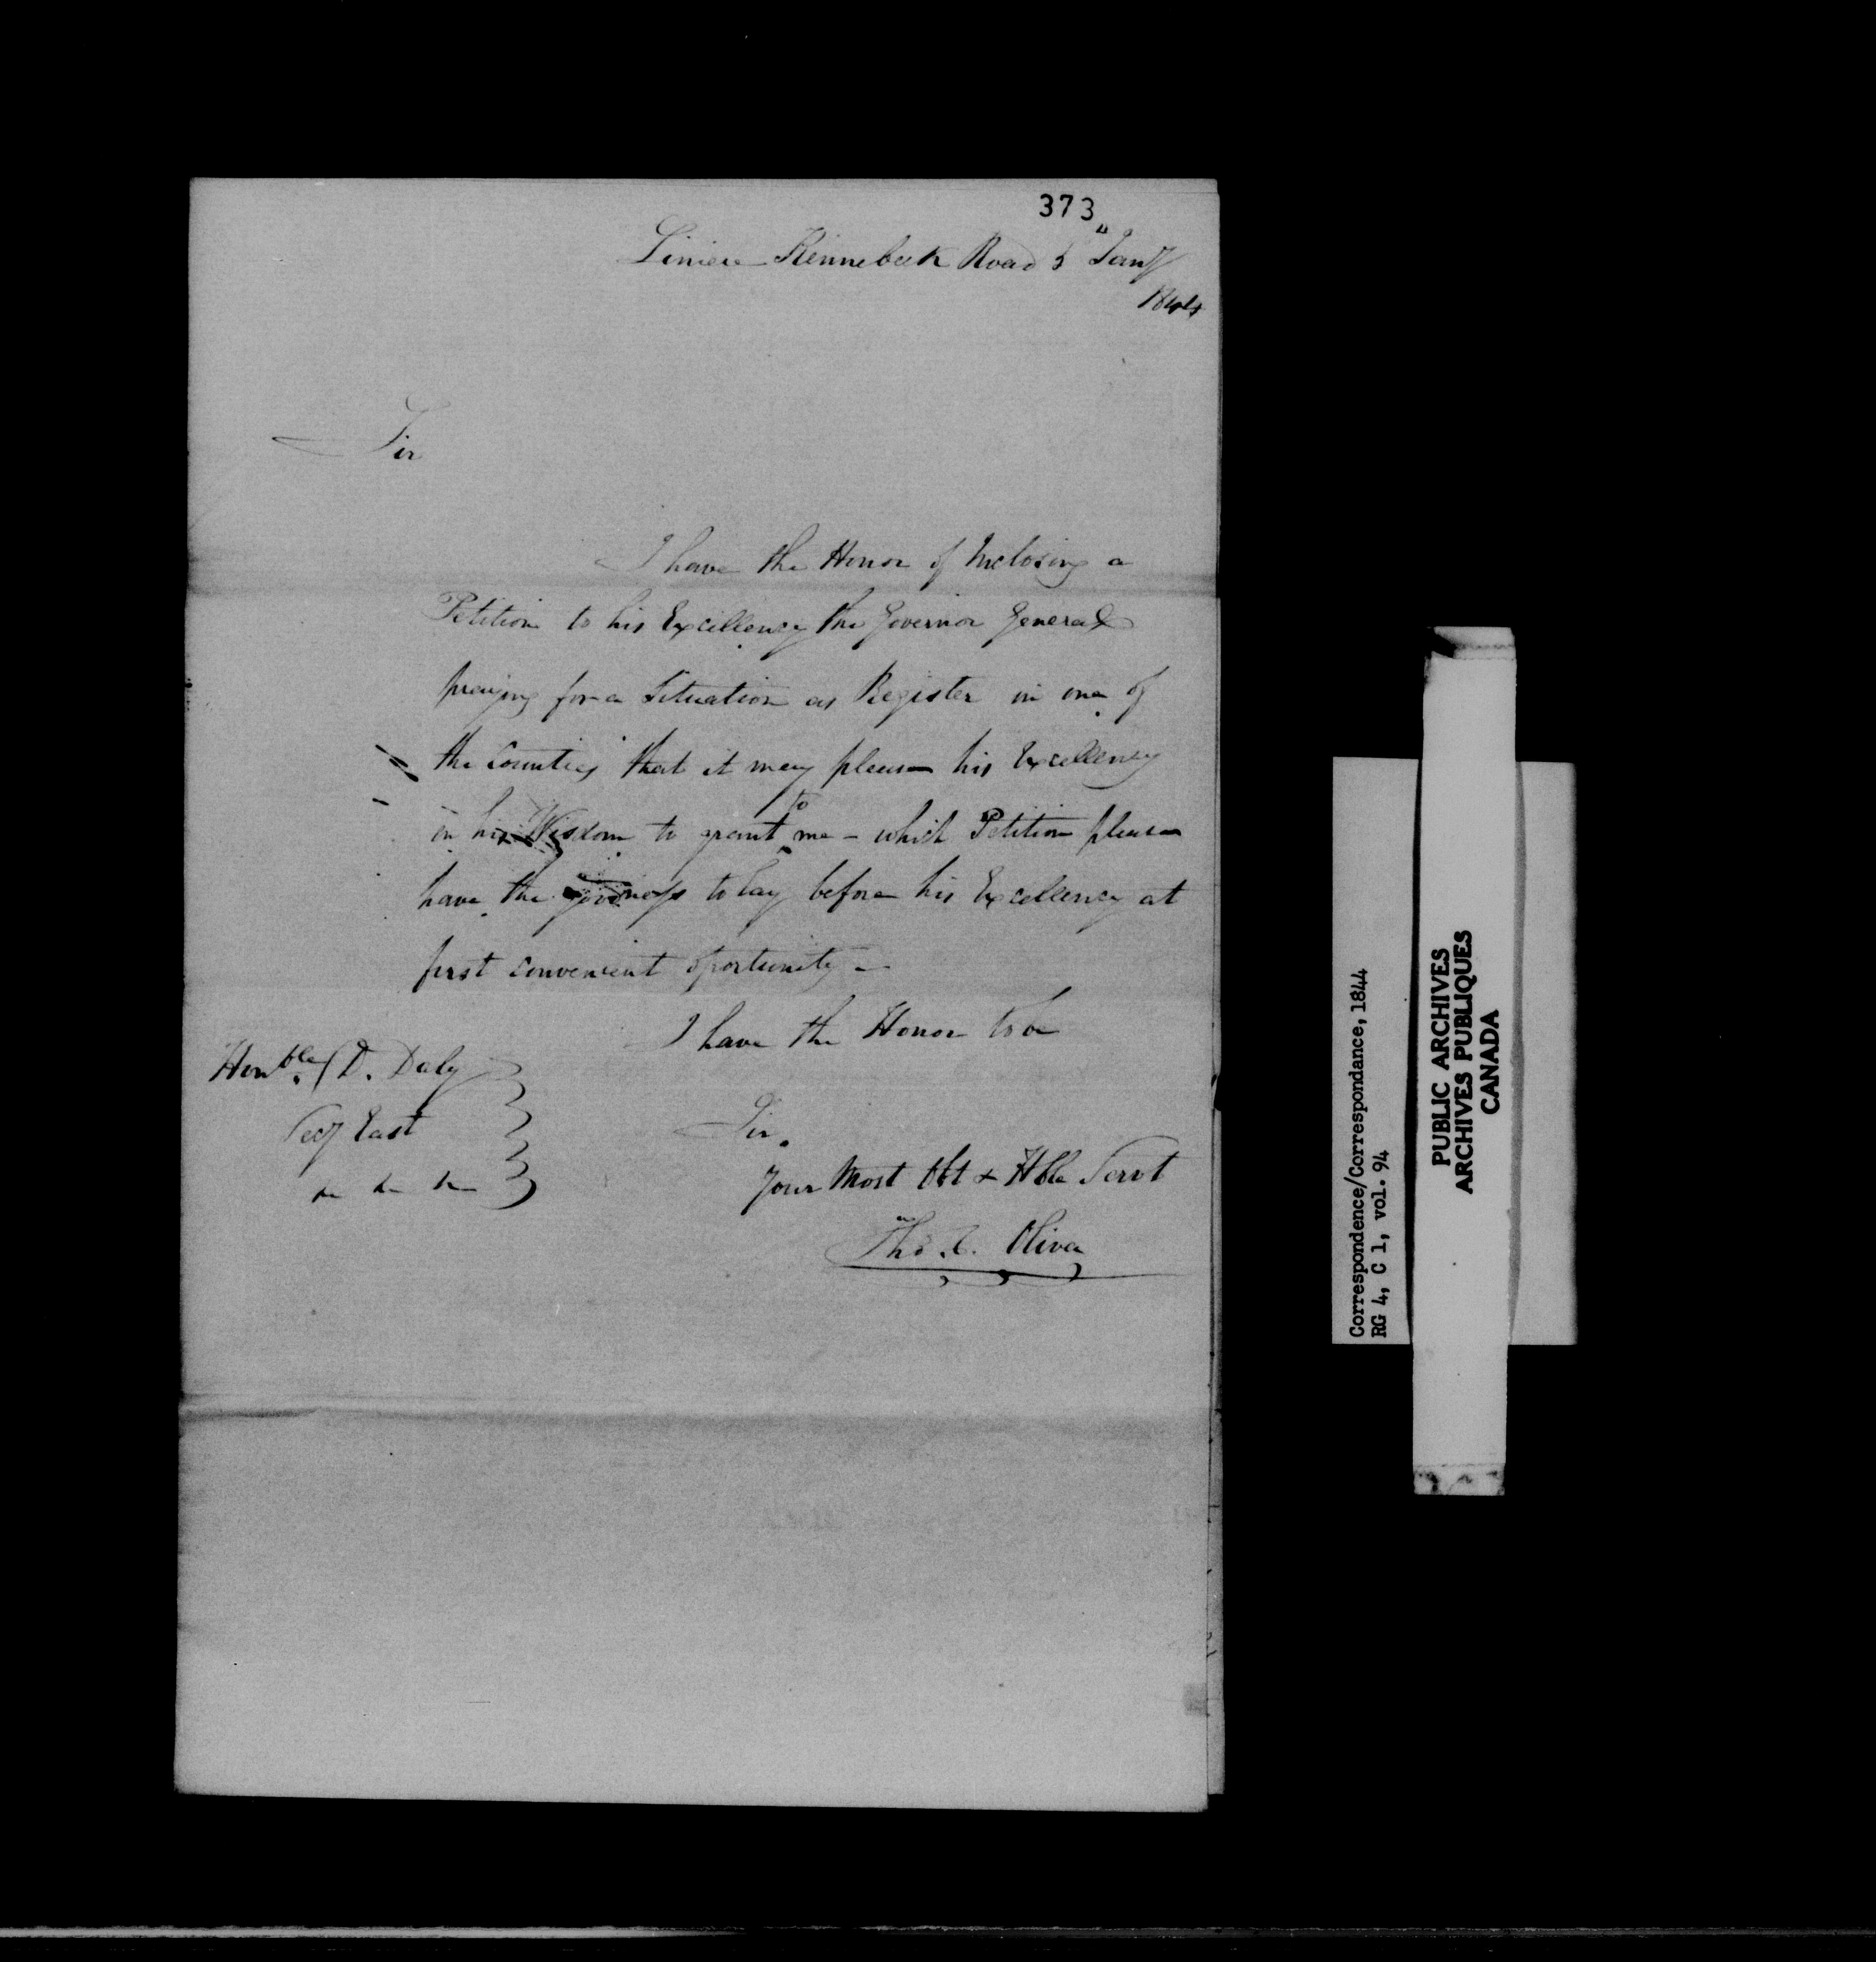 373
Liniere Kennebeck Road 5" Jany
1844
Sir
I have the Honor of Inclosing a
Petition to his Excellency the Governor General
praying for a Situation as Register in one of
the Counties that it may please his Excellency
in his Wisdom to grant to me - which Petition please
have the goodness to lay before his Excellency at
first convenient oportunity -
I have the Honor to be
Honble D. Daly
Secy East
Sir.
Your Most Obt & Hble Servt
Thos. C. Oliva
Correspondence/Correspondance, 1844
RG 4, C 1, vol. 94
PUBLIC ARCHIVES
ARCHIVES PUBLIQUES
CANADA